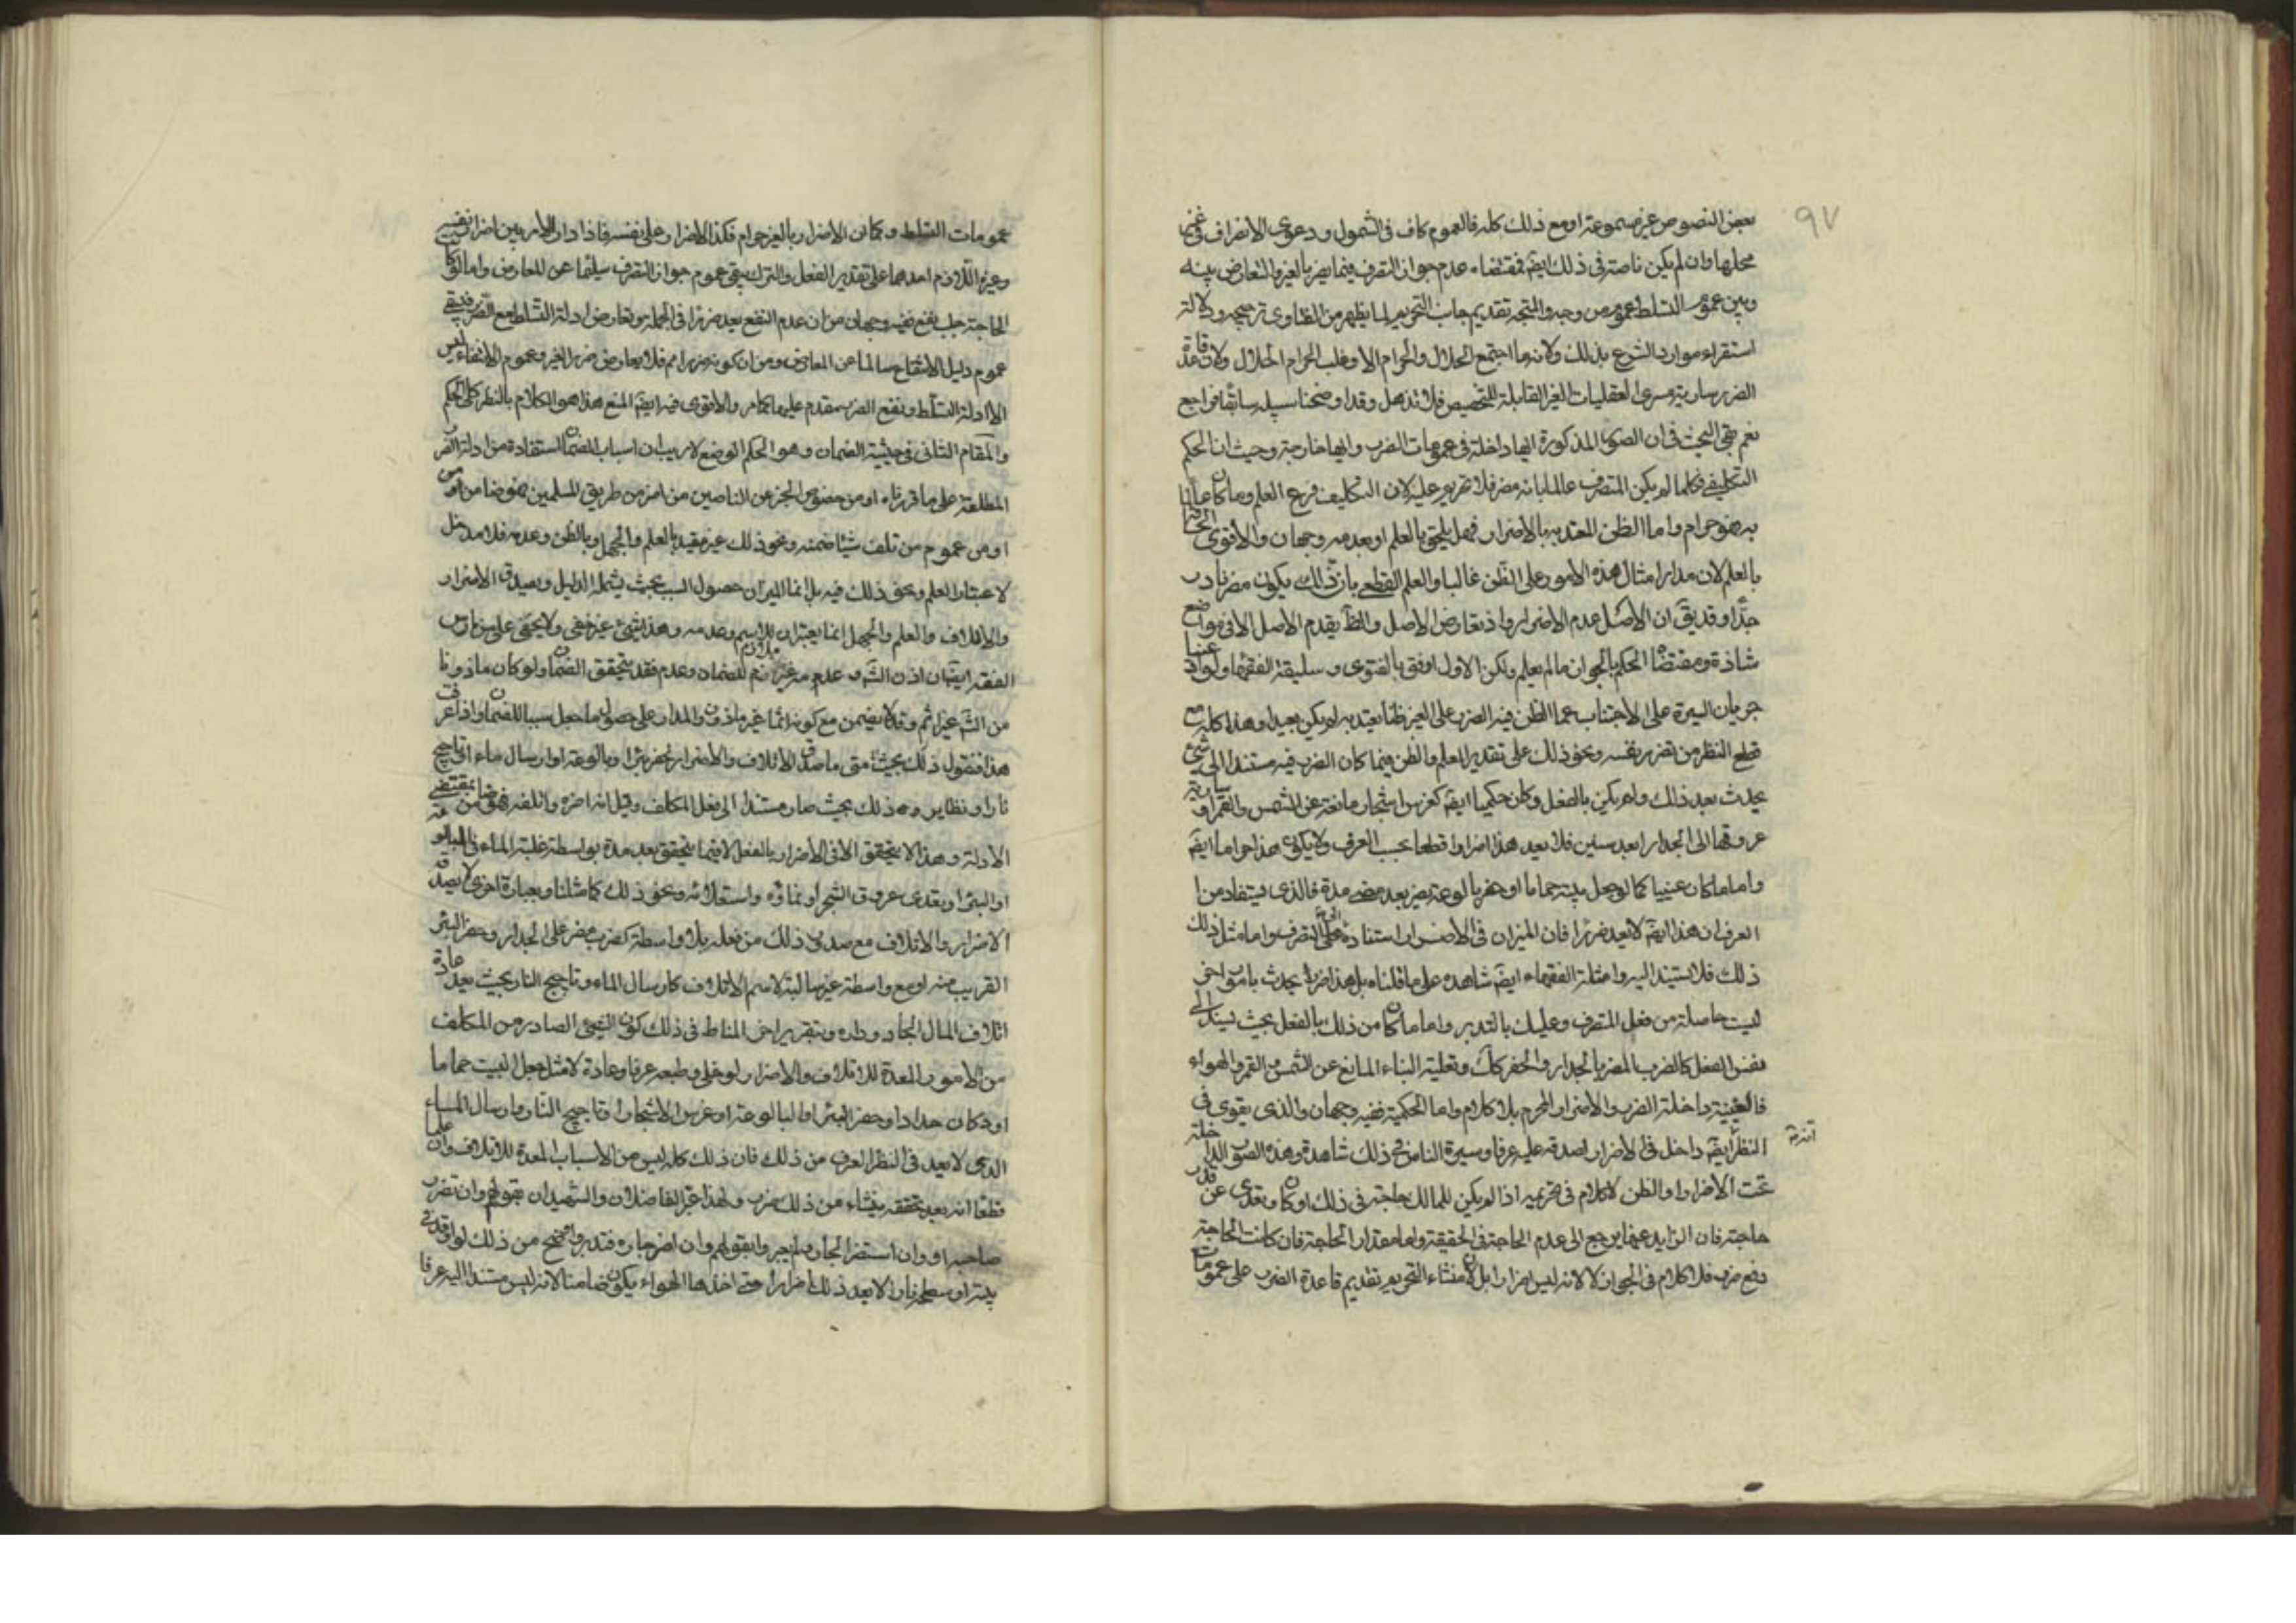 ٩٧
بعض النصوص غير مسموعة او مع ذلك كله فالعموم كاف فى الشمول ودعوى الانصراف فى غير
محلها وان لم يكن ناصة فى ذلك ايضا فمقتضاه عدم جواز التصرف فيما يضر بالغير والتعارض بينه
وبين عموم التسلط عموم من وجه والمتجه تقديم جانب التحريم لما يظهر من الفتاوى ترجيحه ودلالة
استقراء موارد الشرع بذلك ولانه ما اجتمع الحلال والحرام الا وغلب الحرام الحلال ولان قاعدة
الضرر سارية مسرى العقليات الغير القابلة للتخصيص فلا تذهل وقد اوضحنا سبيله سابقا فراجع
نعم بقى البحث فى ان الصور المذكورة ايها داخلة فى عمومات الضرر وايها خارجة وحيث ان الحكم
التكليفى فكلما لم يكن المتصرف عالما بانه مضر فلا تحريم عليه لان التكليف فرع العلم وما كان عالما
به فهو حرام واما الظن المعتد به بالاضرار فهل يلحق بالعلم او بعدمه وجهان والاقوى الحاقه
بالعلم لان مدار امثال هذه الامور على الظن غالبا والعلم القطعى بان ذلك يكون مضرا نادر
جدا وقد يق ان الاصل عدم الاضرار واذ تعارض الاصل والظ يقدم الاصل الا فى مواضع
شاذة ومقتضاه الحكم بالجواز ما لم يعلم ولكن الاول اوفق بالفتوى وسليقة الفقهاء ولو ادعينا
جريان السيرة على الاجتناب عما الظن فيه الضرر على الغير ظنا يعتد به لم يكن بعيدا وهذا كله مع
قطع النظر من تضرر نفسه ونحو ذلك على تقدير العلم والظن فيما كان الضرر فيه مستندا الى شئ
يحدث بعد ذلك ولم يكن بالفعل وكان حكميا ايضا كغرس اشجار مانعة عن الشمس والقمر او سارية
عروقها الى الجدار بعد سنين فلا يعد هذا اضرارا قطعا بحسب العرف ولا يكون هذا حراما ايضا
واما ما كان عينيا كما لو جعل بيته حماما او حفر بالوعة يضر بعد مضى مدة فالذى يستفاد من
العرف ان هذا ايضا لا يعد ضررا فان الميزان فى الاضرار استناده الى التصرف واما مثل ذلك
ذلك فلا يستند اليه وامثلة الفقهاء ايضا شاهدة على ما قلناه بل هذا ضرر يحدث بامور اخر
ليست حاصلة من فعل المتصرف وعليك بالتدبر واما ما كان من ذلك بالفعل بحيث يستند الى
نفس الفعل كالضرب المضر بالجدار والحفر كك وتعلية البناء المانع عن الشمس والقمر والهواء
فالعينية داخلة الضرر والاضرار المحرم بلا كلام واما الحكمية ففيه وجهان والذى يقوى فى
النظر انه ايضا داخل فى الاضرار لصدقه عليه عرفا وسيرة الناس فى ذلك شاهدة وهذه الصور الداخلة
تحت الاضرار والظن لا كلام فى تحريمه اذا لم يكن للمالك حاجة فى ذلك او كان وتعدى عن قدر
حاجته فان الزايد عنها يرجع الى عدم الحاجة فى الحقيقة واما مقدار الحاجة فان كانت الحاجة
دفع ضرر فلا كلام فى الجواز لا لانه ليس اضرارا بل لان منشاء التحريم تقديم قاعدة الضرر على عمومات
عمومات التسلط وكما ان الاضرار بالغير حرام فكذا الاضرار على نفسه فاذا دار الامر بين اضرار نفسه
وغيره اللازم احدهما على تقدير الفعل والترك يبقى عموم جواز التصرف سليما عن المعارض واما لو كان
الحاجة جلب نفع ففيه وجهان من ان عدم النفع يعد ضررا فى الجملة وتعارض ادلة التسلط مع الضرر فيبقى
عموم دليل الانتفاع سالما عن المعارض ومن ان كونه ضررا مم فلا يعارض ضرر الغير وعموم الانتفاع ليس
الا ادلة التسلط ونفى الضرر مقدم عليها كما مر والاقوى فيه ايضا المنع هذا هو الكلام بالنظر الى الحكم
والمقام الثانى فى حيثية الضمان وهو الحكم الوضعى لا ريب ان اسباب الضمان المستفادة من ادلة الضرر
المطلقة على ما قررناه او من خصوص الخبرين الناصين من اضر من طريق المسلمين فهو ضامن او من
او من عموم من تلف شيئا ضمنه ونحو ذلك غير مقيد بالعلم والجهل وبالظن وعدمه فلا مدخل
لاعتبار العلم ونحو ذلك فيه بل انما الميزان حصول السبب بحيث يشمله الدليل ويصدق الاضرار
والاتلاف والعلم والجهل انما يعتبران للاسم وعدمه وهذا شئ غير خفى ولا يخفى على من مارس
الفقه ايضا ان اذن الش وعدمه غير ملازم للضمان وعدمه فقد يتحقق الضمان ولو كان ماذونا
من الش غير اثم وقد لا يضمن مع كونه اثما غير ماذون والمدار على حصول ما جعل سببا للضمان واذا عرفت
هذا فنقول ذلك بحيث متى ما صدق الاتلاف والاضرار بحفر بئر او بالوعة او ارسال ماء او تاجيج
نار او نظاير وه ذلك بحيث صار مستندا الى فعل المكلف وقيل انه اضره واتلفه فهو ضامن بمقتضى
الادلة وهذا لا يتحقق الا فى الاضرار بالفعل لا فيما يتحقق بعد مدة بواسطة غلبة الماء فى البالوعة
او البئر او تعدى عروق الشجر او نماؤه واستعلائه ونحو ذلك كما مثلنا وبعبارة اخرى لا يصدق
الاضرار والاتلاف مع صدور ذلك من فعله بلا واسطة كضرب مضر على الجدار وحفر البئر
القريب منه او مع واسطة غير سالبة لاسم الاتلاف كارسال الماء وتاجيج النار بحيث يعد عادة
اتلاف المال الجار وداره وبتقرير اخر المناط فى ذلك كون الشئ الصادر من المكلف
من الامور المعدة للاتلاف والاضرار لو خلى وطبعه عرفا وعادة لا مثل جعل البيت حماما
او دكان حداد او حفر البئر او البالوعة او غرس الاشجار او تاجيج النار وارسال الماء
الذى لا يعد فى النظر العرفى من ذلك فان ذلك كله ليس من الاسباب المعدة للاتلاف وان علما
قطعا انه بعد تحققه ينشاء من ذلك ضرر ولهذا عبر الفاضلان والشهيدان بقولهم وان تضرر
صاحبه او وان استضر الجار ولم يعبروا بقولهم وان اضر جاره فتدبر واوضح من ذلك لو اوقد فى
بيته او سطحه نارا لا يعد ذلك اضرارا حتى اخذها الهواء يكون ضامنا لانه ليس مستندا اليه عرفا